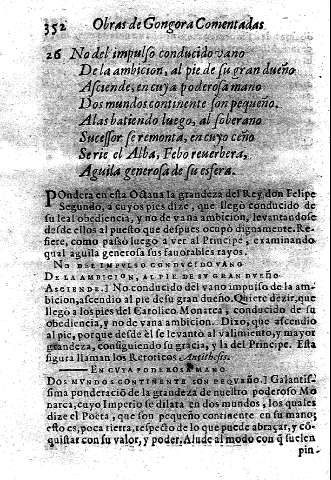 352 Obras de Gongora Comentadas
26 No del impulso conducido vano
De la ambicion, al pie de su gran dueño
Asciende, en cuya poderosa mano
Dos mundos continente son pequeño.
Alas batiendo luego, al soberano
Sucessor se remonta, en cuyo ceño
Serie el Alba, Febo reuerbera,
Aguila generosa de su esfera.
POndera en esta Octaua la grandeza del Rey don Felipe
Segundo, a cuyos pies dize, que llegò conducido de
su leal obediencia, y no de vana ambicion, leuantandose
desde ellos al puesto que despues ocupò dignamente. Re-
fiere, como passò luego a ver al Principe, examinando
qual aguila generosa sus fauorables rayos.
NO DEL IMPULSO CONDUCIDO VANO
DE LA AMBICION, AL PIE DE SU GRAN DUEÑO
ASCIENDE.] No conducido del vano impulso de la am-
bicion, ascendio al pie de su gran dueño. Quiere dezir, que
llegò a los pies del Catolico Monarca, conducido de su
obediencia, y no de vana ambicion. Dixo, que ascendio
al pie, porque desde èl se leuantò al valimiento, y mayor
grandeza, consiguiendo su gracia, y la del Principe. Esta
figura llaman los Retoricos Antithesis.
EN CUYA PODEROSA MANO
DOS MUNDOS CONTINENTE SON PEQUEÑO.] Galantis-
sima ponderaciō de la grandeza de nuestro poderoso Mo
narca, cuyo Imperio se dilata en dos mundos, los quales
dize el Poeta, que son pequeño continente en su mano;
esto es, poca tierra, respecto de lo que puede abraçar, y cō-
quistar con su valor, y poder. Alude al modo con q̄ suelen
pin-